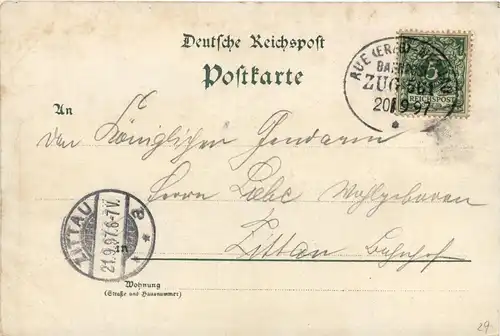 Deutsche Reichspost
Postkarte
AUE (ERZG
BAHNPOST
ZUG 561
20 9 97
5
REICHSPOST
An
den Königlichen Gendarm
Herrn Wohlgeboren
in Zittau Bahnhof
ZITTAU
21.9.97.6-7V.
a
Wohnung
(Straße und Hausnummer)
29